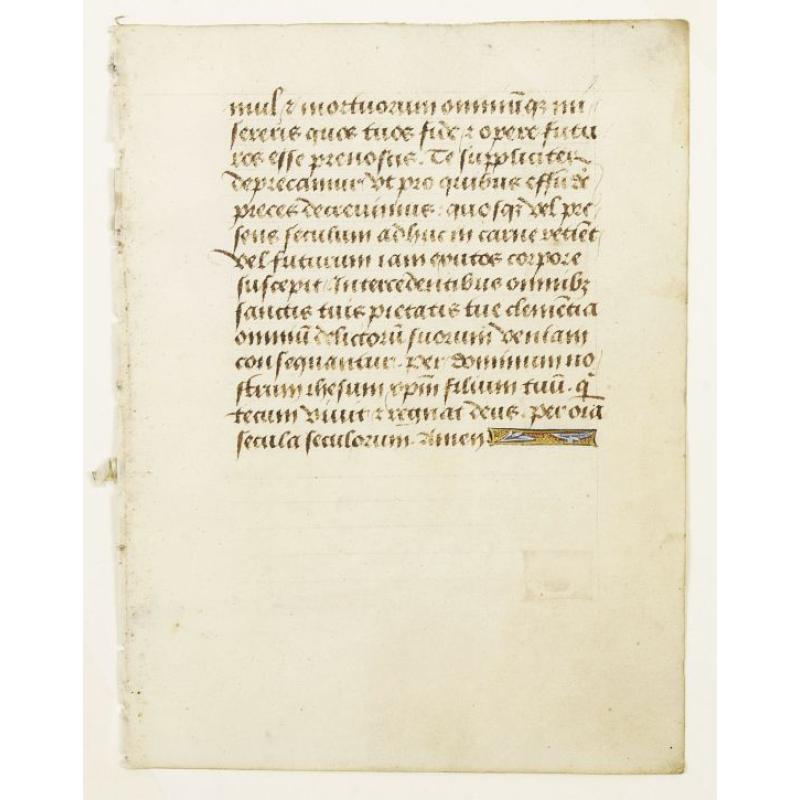 mul ⁊ mortuorum omniūqꝫ mi
sereris quos tuos fide ⁊ opere futu
ros esse prenoscis. Te suppliciter
deprecamur vt pro quibus effūde
preces decreuimus: quosqꝫ vel pre
sens seculum adhuc in carne retinet
vel futurum iam exutos corpore
suscepit Intercedentibus omnibꝫ
sanctis tuis pietatis tue clemētia
omniū delictorū suorum veniam
consequantur. per dominum no
strum ihesum xp̄m filium tuū. q̄
tecum viuit ⁊ regnat deus. per oīa
secula seculorum. Amen